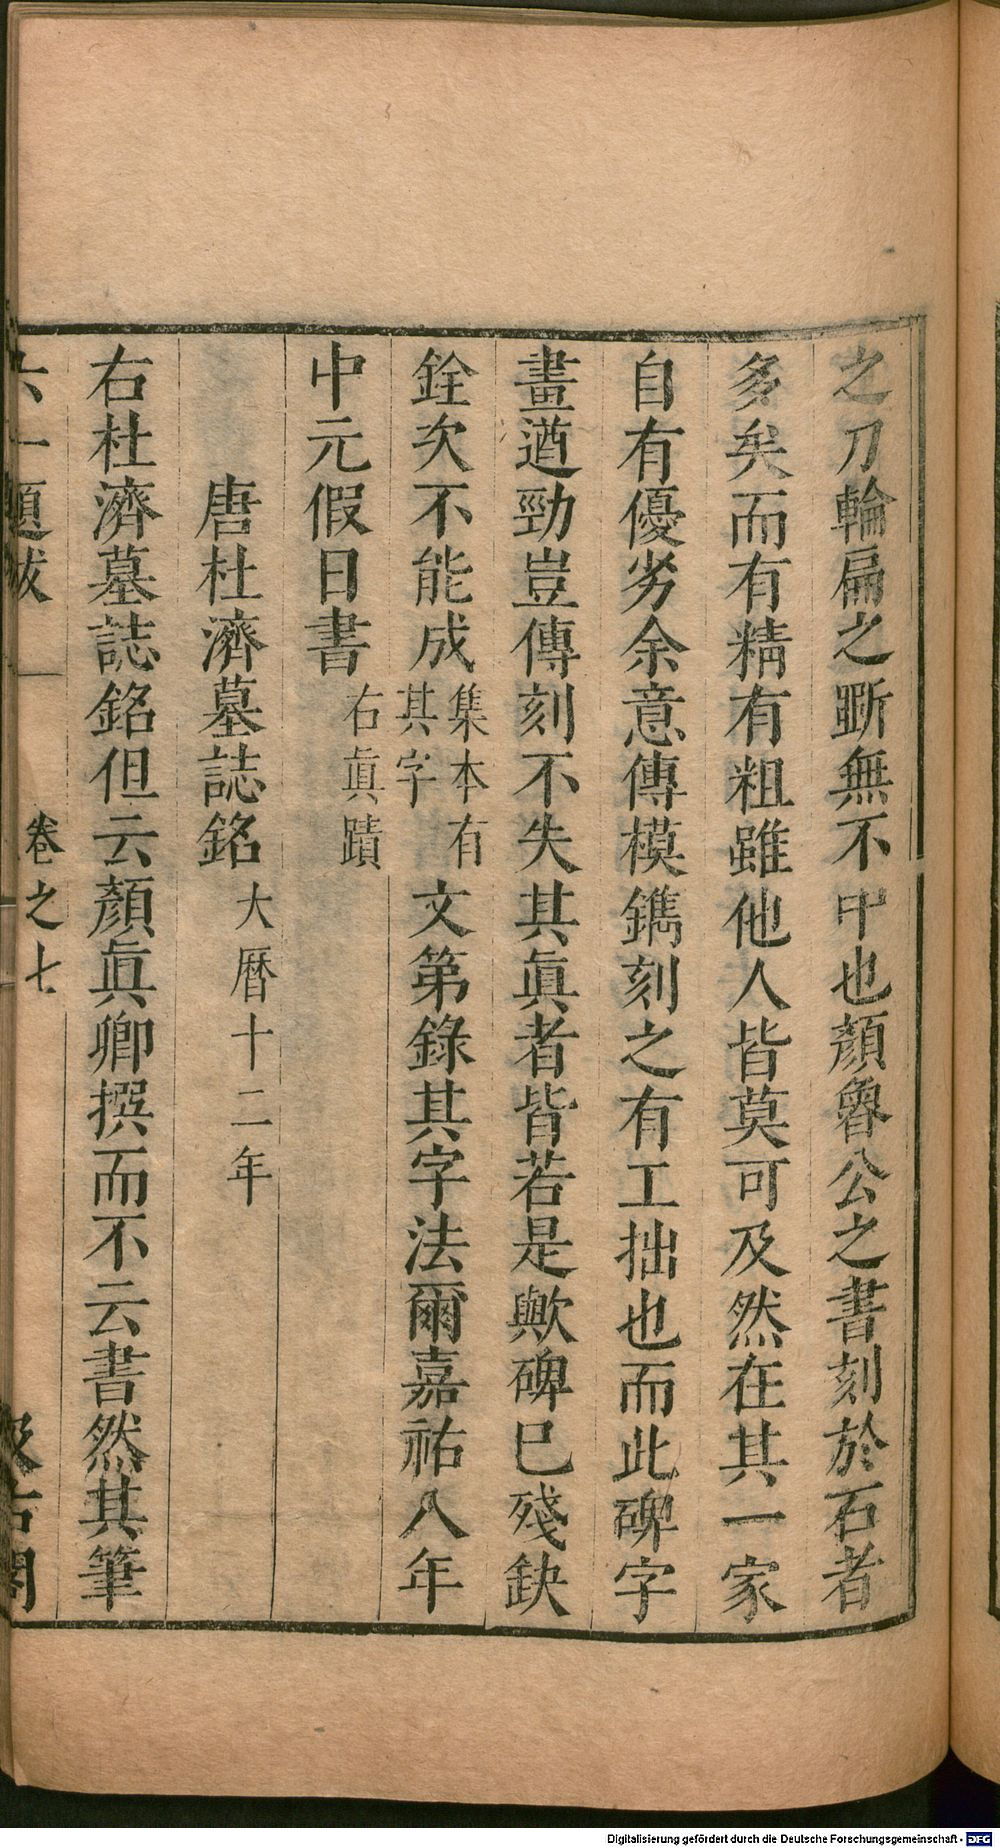 之刀輪扁之斲無不中也顏魯公之書刻於石者
多矣而有精有粗雖他人皆莫可及然在其一家
自有優劣余意傳模鐫刻之有工拙也而此碑字
畫遒勁豈傳刻不失其眞者皆若是歟碑巳殘缺
銓次不能成集本有其字文第錄其字法爾嘉祐八年
中元假日書右眞蹟
唐杜濟墓誌銘大曆十二年
右杜濟墓誌銘但云顏眞卿撰而不云書然其筆
六一題跋 卷之七 汲古閣
Digitalisierung gefördert durch die Deutsche Forschungsgemeinschaft - DFG